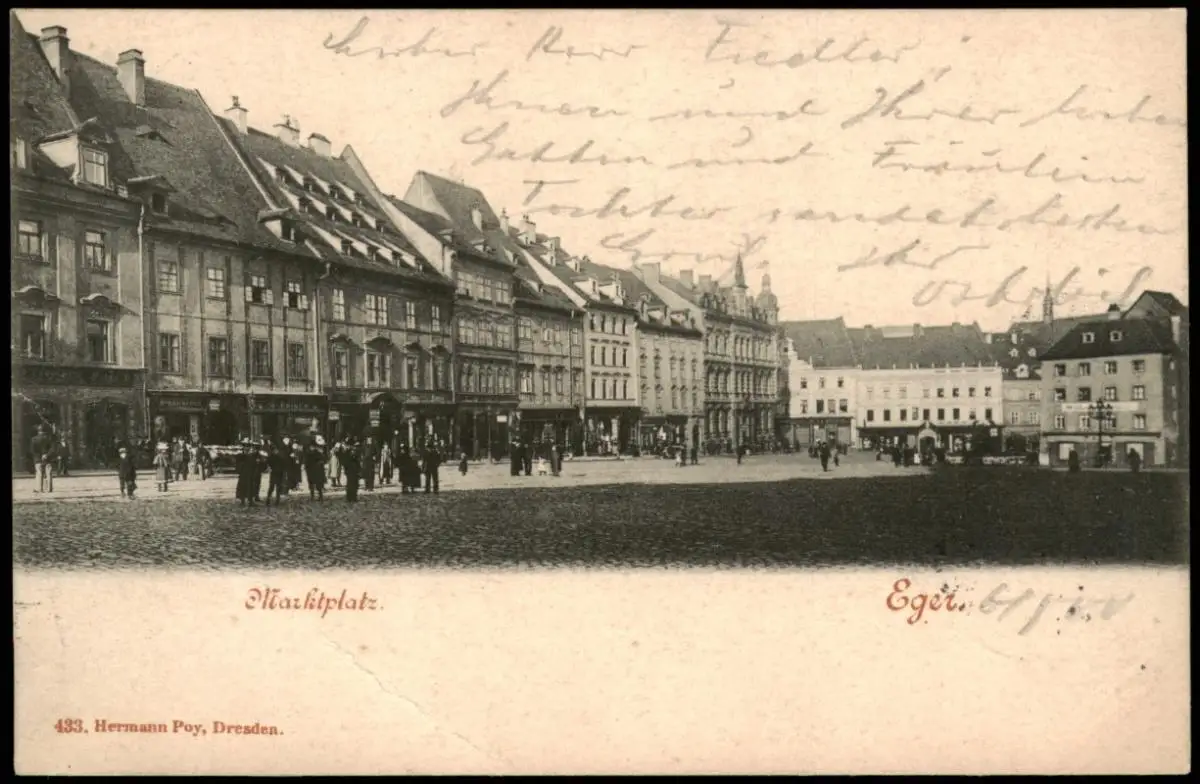 Lieber Herr Fiedler,
Ihnen und Ihrer lieben
Gatten und Fräulein
Tochter sendet herzlichen
Ihr
Marktplatz.
Eger.
433. Hermann Poy, Dresden.